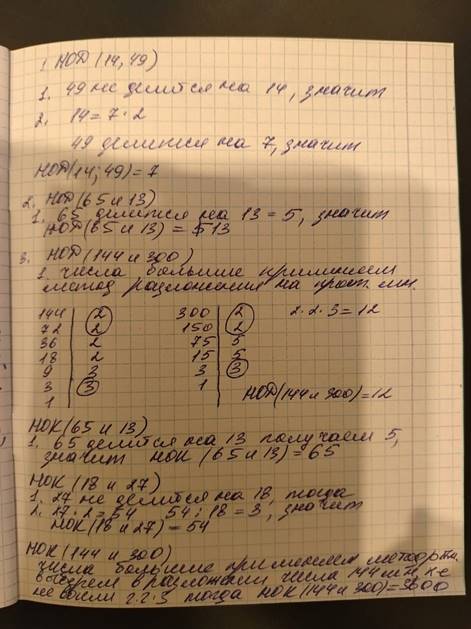 1. НОД(14,49)
1. 49 не делится на 14, значит
2. 14=7·2
49 делится на 7, значит
НОД(14;49)=7
2. НОД(65 и 13)
1. 65 делится на 13 = 5, значит
НОД(65 и 13) = 13
3. НОД(144 и 300)
1. числа большие применяем
метод разложения на прост. мн.
144 2 300 2 2·2·3=12
72 2 150 2
36 2 75 5
18 2 15 5
9 3 3 3
3 3 1
1 НОД(144 и 300)=12
НОК(65 и 13)
1. 65 делится на 13 получаем 5,
значит НОК (65 и 13)=65
НОК (18 и 27)
1. 27 не делится на 18, тогда
2. 27·2=54 54:18=3, значит
НОК(18 и 27)=54
НОК (144 и 300)
числа большие применяем метод
в разложении числа 144
не вошли 2·2·3 тогда НОК(144 и 300)=3600